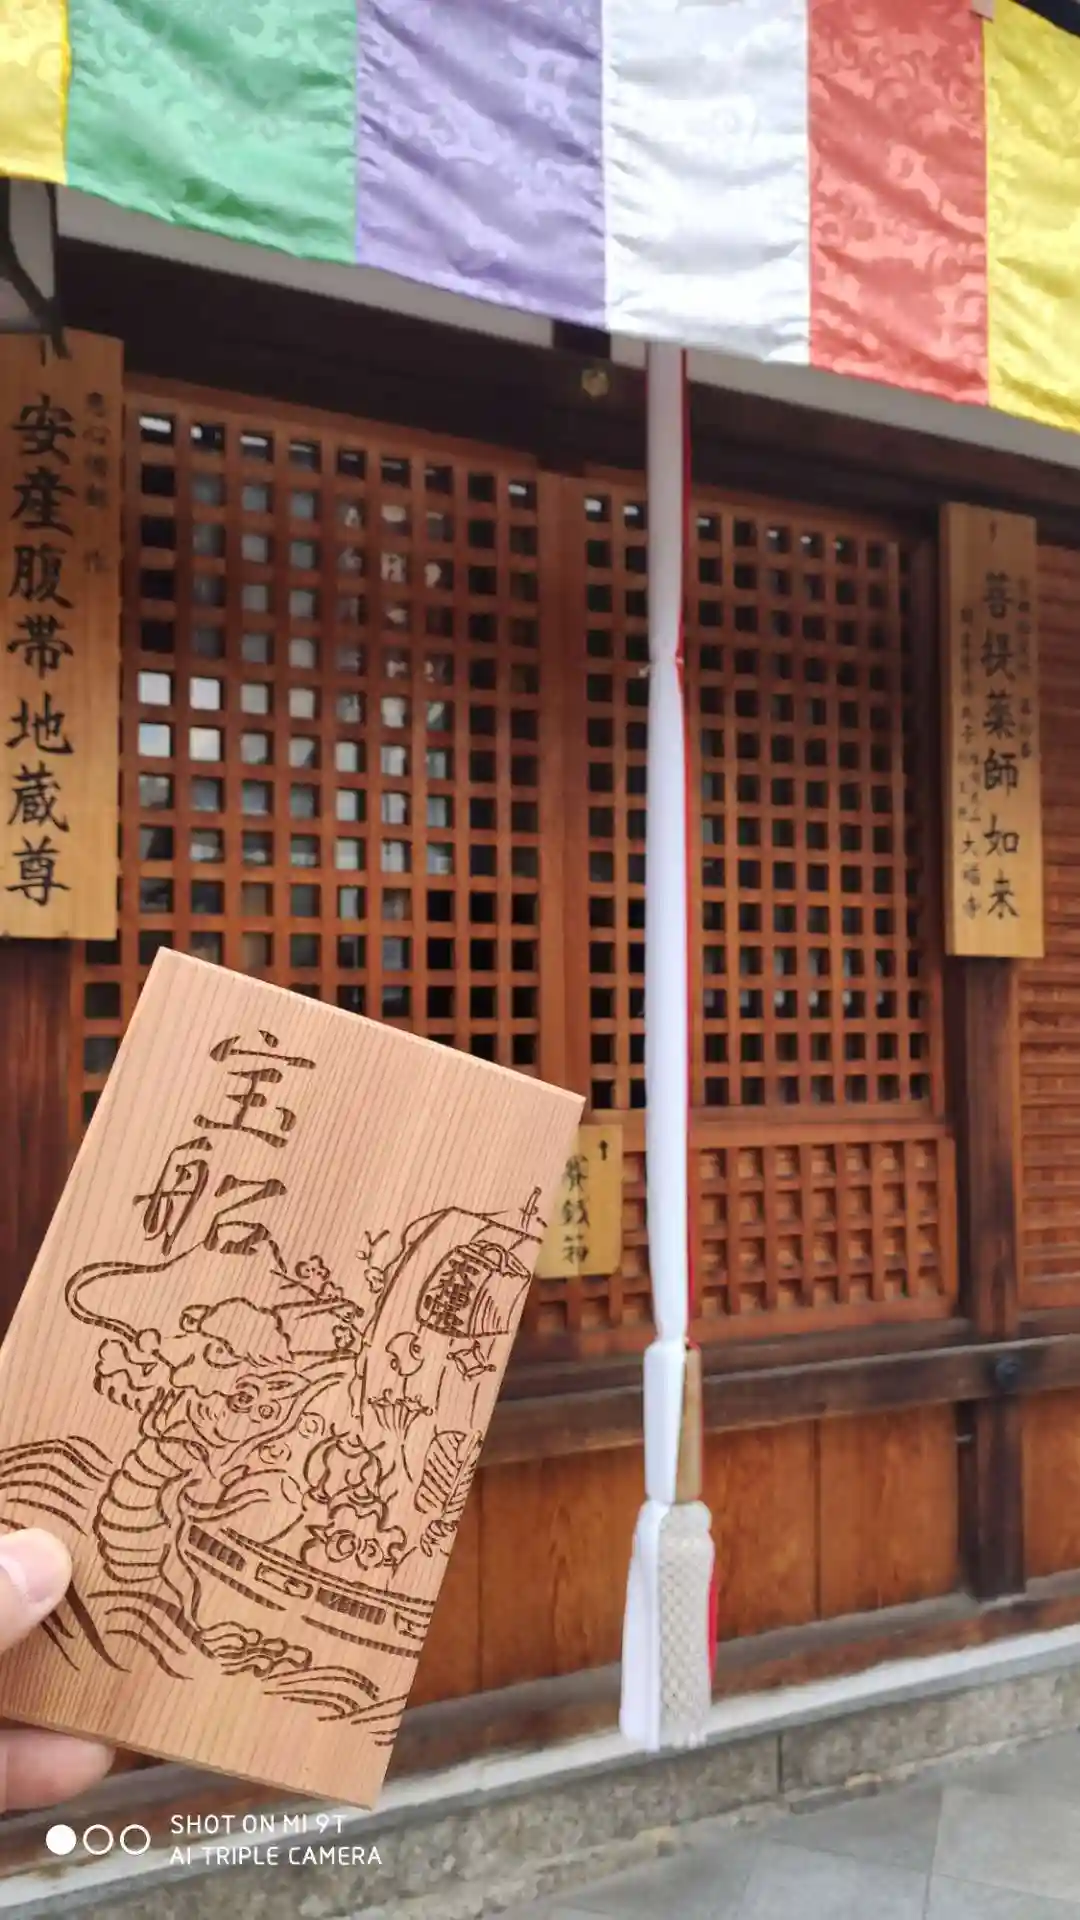 安産腹帯地蔵尊
菩提薬師如来
大福寺
宝船
賽銭箱
SHOT ON MI 9T
AI TRIPLE CAMERA